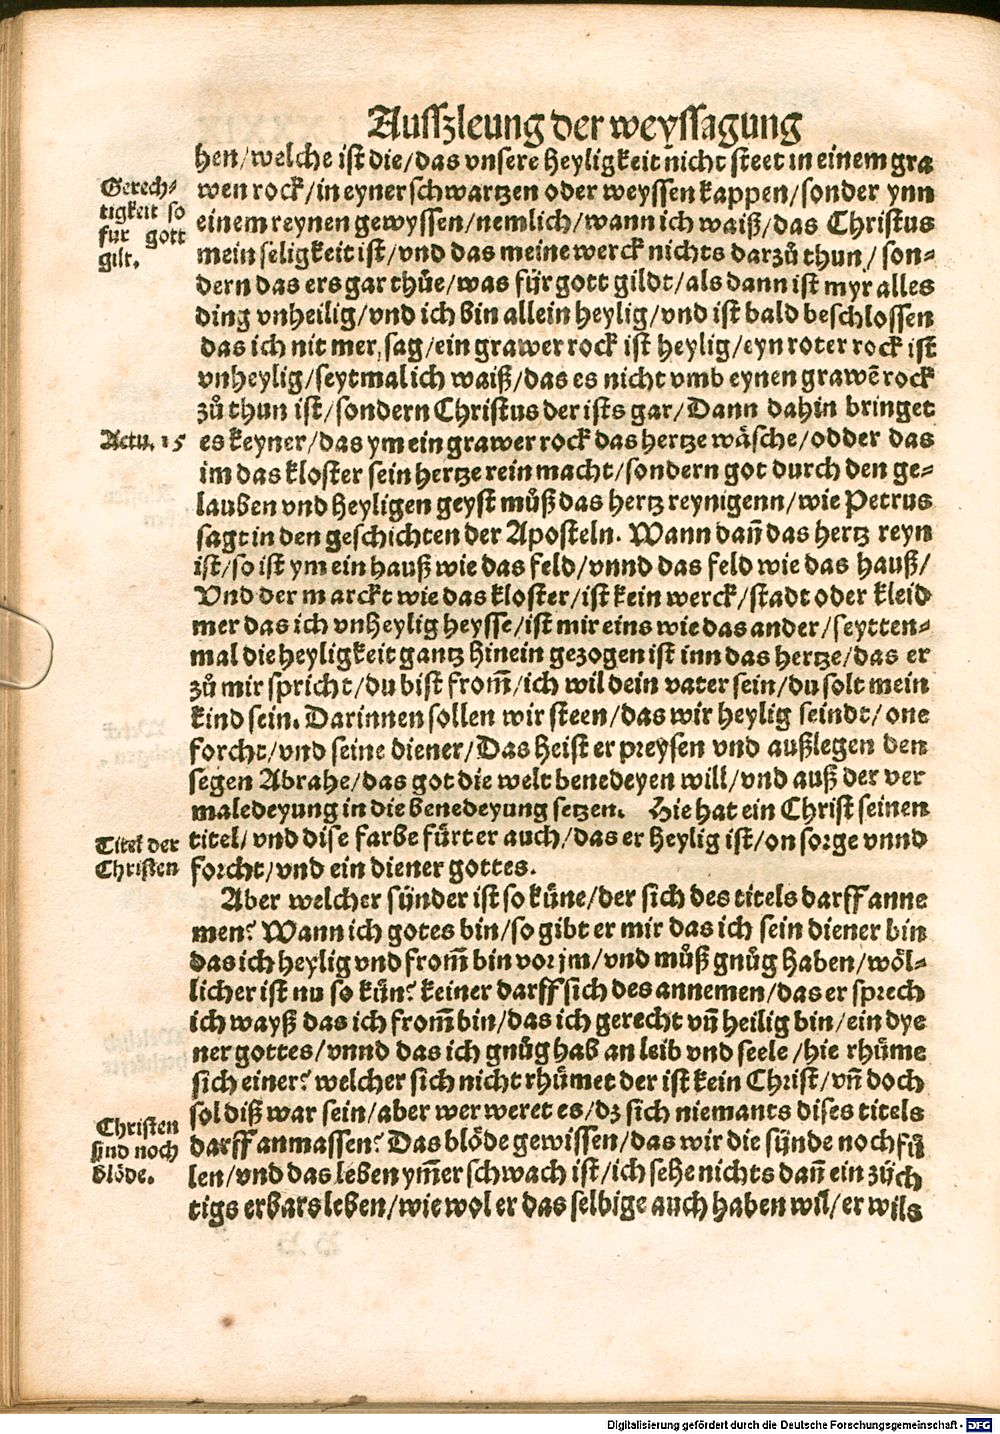 Aufſzleung der weyſſagung
hen/welche iſt die/das vnſere heyligkeit nicht ſteet in einem gra
Gerech⸗
tigkeit ſo
fur gott
gilt.
wen rock/in eyner ſchwartzen oder weyſſen kappen/ſonder ynn
einem reynen gewyſſen/nemlich/wann ich waiß/das Chriſtus
mein ſeligkeit iſt/vnd das meine werck nichts darzů thun/ ſon⸗
dern das ers gar thůe/was für gott gildt/als dann iſt myr alles
ding vnheilig/vnd ich bin allein heylig/vnd iſt bald beſchloſſen
das ich nit mer ſag/ein grawer rock iſt heylig/eyn roter rock iſt
vnheylig/ſeytmal ich waiß/das es nicht vmb eynen grawē rock
zů thun iſt/ſondern Chriſtus der iſts gar/Dann dahin bringet
Actu. 15
es keyner/das ym ein grawer rock das hertze wäſche/odder das
im das kloſter ſein hertze rein macht/ſondern got durch den ge⸗
lauben vnd heyligen geyſt můß das hertz reynigenn/wie Petrus
ſagt in den geſchichten der Apoſteln. Wann dañ das hertz reyn
iſt/ſo iſt ym ein hauß wie das feld/vnnd das feld wie das hauß/
Vnd der marckt wie das kloſter/iſt kein werck/ſtadt oder kleid
mer das ich vnheylig heyſſe/iſt mir eins wie das ander/ſeytten⸗
mal die heyligkeit gantz hinein gezogen iſt inn das hertze/das er
zů mir ſpricht/du biſt from̃/ich wil dein vater ſein/du ſolt mein
kind ſein. Darinnen ſollen wir ſteen/das wir heylig ſeindt/one
forcht/vnd ſeine diener/Das heiſt er preyſen vnd außlegen den
ſegen Abrahe/das got die welt benedeyen will/vnd auß der ver
maledeyung in die benedeyung ſetzen. Hie hat ein Chriſt ſeinen
Titel der
Chriſten
titel/vnd diſe farbe fürt er auch/das er heylig iſt/on ſorge vnnd
forcht/vnd ein diener gottes.
Aber welcher ſünder iſt ſo küne/der ſich des titels darff anne
men? Wann ich gotes bin/ſo gibt er mir das ich ſein diener bin
das ich heylig vnd from̃ bin vor jm/vnd můß gnůg haben/wöl⸗
licher iſt nu ſo kün? keiner darff ſich des annemen/das er ſprech
ich wayß das ich from̃ bin/das ich gerecht vñ heilig bin/ein dye
ner gottes/vnnd das ich gnůg hab an leib vnd ſeele/hie rhüme
ſich einer? welcher ſich nicht rhümet der iſt kein Chriſt/vñ doch
Chriſten
ſind noch
blöde.
ſol diß war ſein/aber wer weret es/dz ſich niemants diſes titels
darff anmaſſen? Das blöde gewiſſen/das wir die ſünde noch fü
len/vnd das leben ym̃er ſchwach iſt/ich ſehe nichts dañ ein züch
tigs erbars leben/wie wol er das ſelbige auch haben wil/er wils
Digitalisierung gefördert durch die Deutsche Forschungsgemeinschaft - DFG